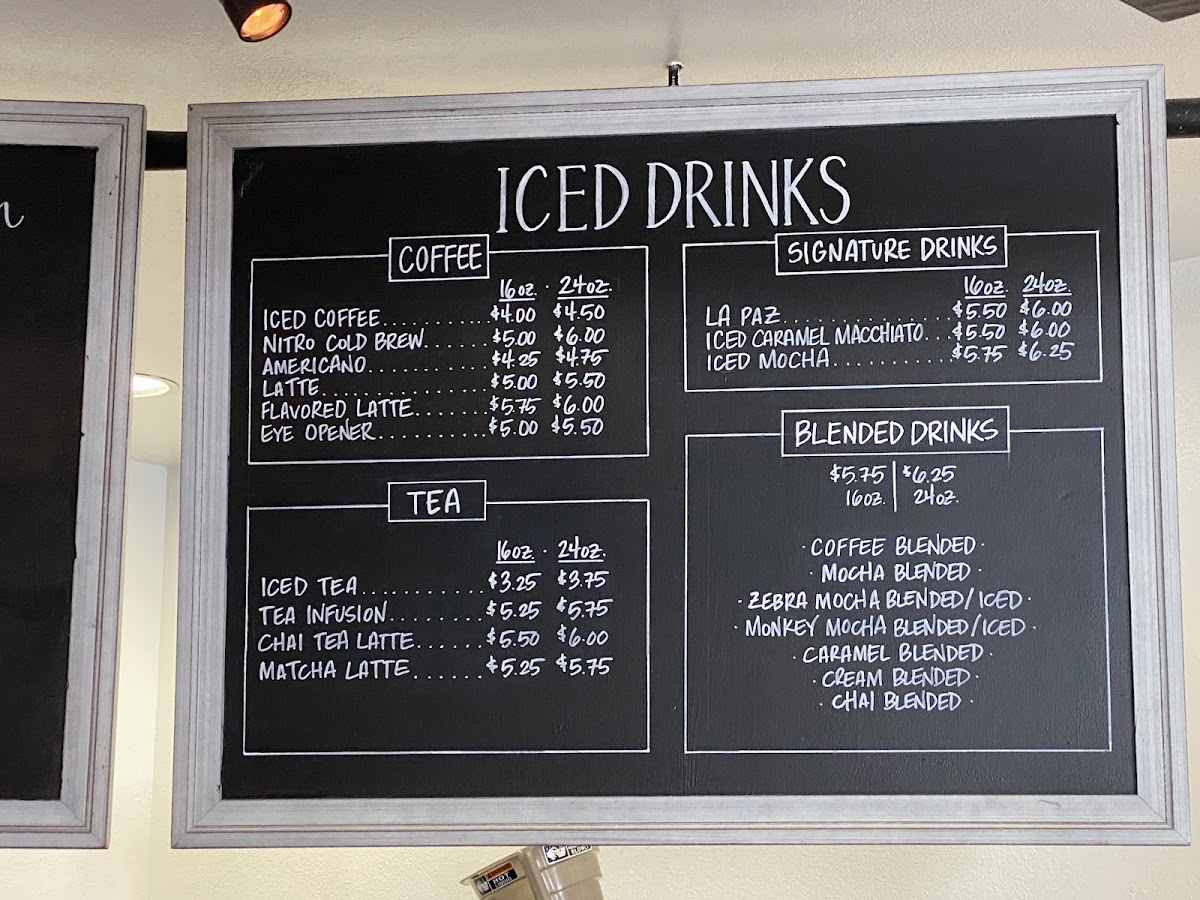 ICED DRINKS
COFFEE
16oz. · 24oz.
ICED COFFEE.......... $4.00 $4.50
NITRO COLD BREW...... $5.00 $6.00
AMERICANO............ $4.25 $4.75
LATTE................ $5.00 $5.50
FLAVORED LATTE....... $5.75 $6.00
EYE OPENER.......... $5.00 $5.50
TEA
16oz. · 24oz.
ICED TEA............ $3.25 $3.75
TEA INFUSION........ $5.25 $5.75
CHAI TEA LATTE...... $5.50 $6.00
MATCHA LATTE...... $5.25 $5.75
SIGNATURE DRINKS
16oz. 24oz.
LA PAZ................ $5.50 $6.00
ICED CARAMEL MACCHIATO... $5.50 $6.00
ICED MOCHA........... $5.75 $6.25
BLENDED DRINKS
$5.75 | $6.25
16oz. | 24oz.
· COFFEE BLENDED ·
· MOCHA BLENDED ·
· ZEBRA MOCHA BLENDED/ICED ·
· MONKEY MOCHA BLENDED/ICED ·
· CARAMEL BLENDED ·
· CREAM BLENDED ·
· CHAI BLENDED ·
HOT